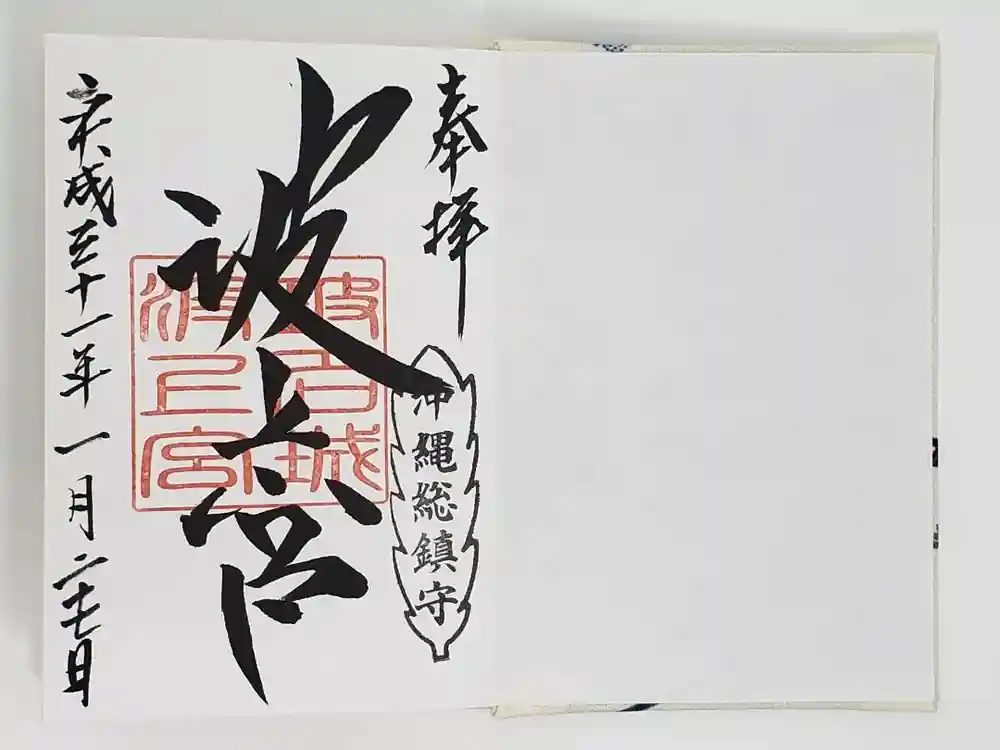 奉拝
沖縄総鎮守
波上宮
波上宮
平成三十一年 一月二十七日